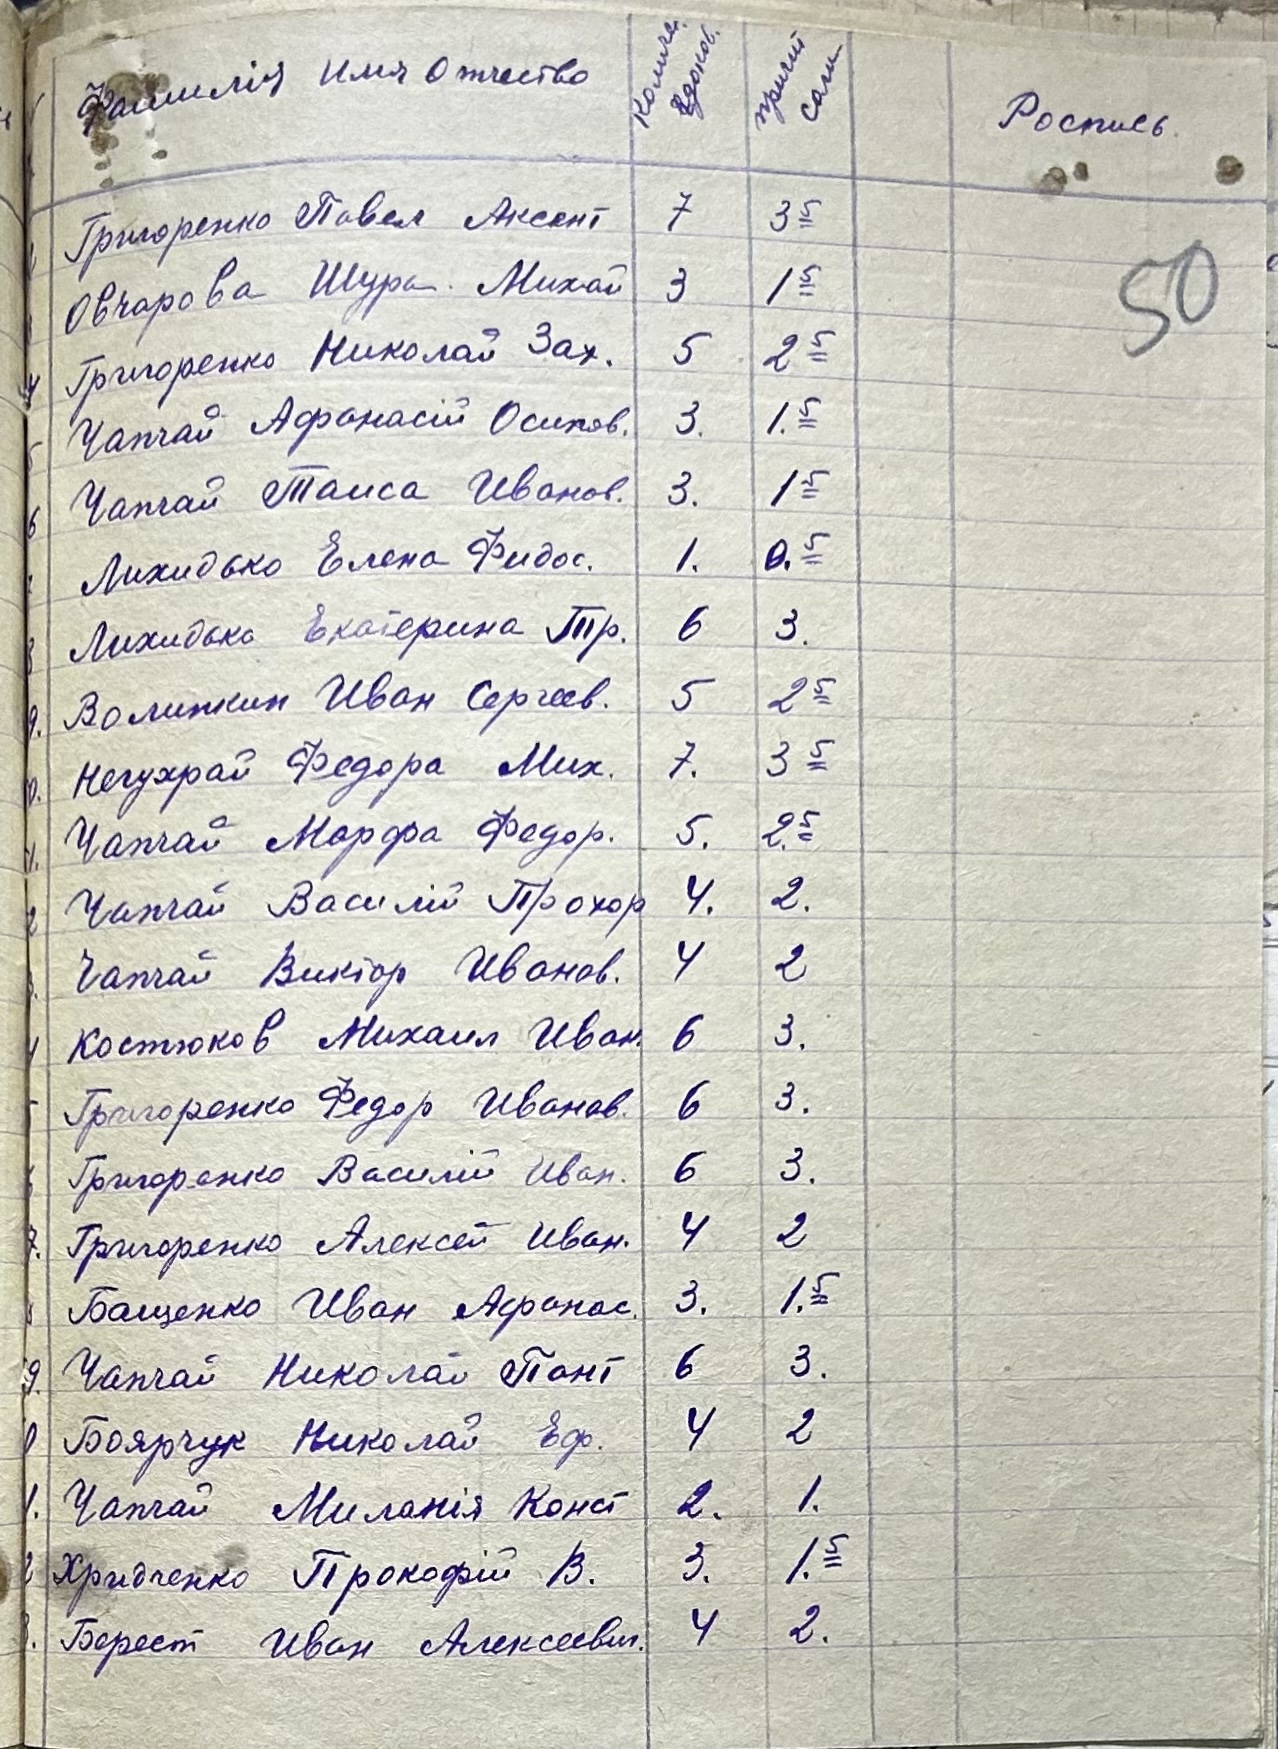 Фамилія Имя Отчество Колич. едоков. причит соли Роспись
50
Григоренко Павел Аксент 7 3 5
Овчарова Шура Михай 3 1 5
4 Григоренко Николай Зах. 5 2 5
5 Чапчай Афанасій Осипов. 3. 1. 5
6 Чапчай Таиса Иванов. 3. 1 5
Лихидько Елена Фидос. 1. 0. 5
8 Лихидько Екатерина Тр. 6 3.
9. Волинкин Иван Сергеев. 5 2 5
0. Нечухрай Федора Мих. 7. 3 5
1. Чапчай Марфа Федор. 5. 2. 5
2 Чапчай Василій Прохор 4. 2.
3. Чапчай Виктор Иванов. 4 2
4 Костюков Михаил Иван. 6 3.
5 Григоренко Федор Иванов. 6 3.
6 Григоренко Василій Иван. 6 3.
7. Григоренко Алексей Иван. 4 2
8 Бащенко Иван Афанас. 3. 1. 5
9. Чапчай Николай Пант 6 3.
0 Боярчук Николай Еф. 4 2
1. Чапчай Миланія Конст 2. 1.
2 Хридченко Прокофій В. 3. 1. 5
3. Берест Иван Алексеевич. 4 2.